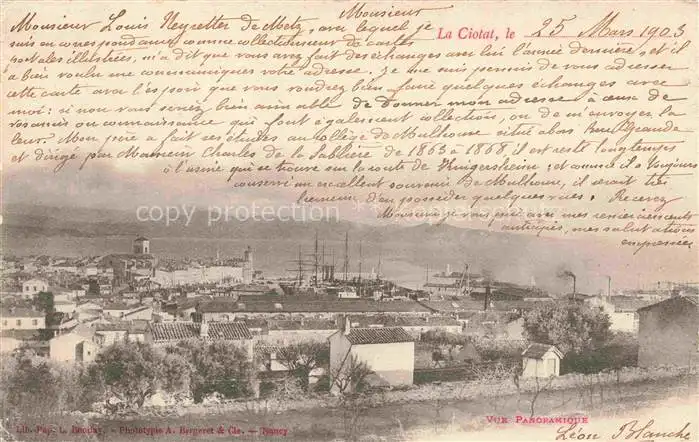 Monsieur
La Ciotat, le 25 Mars 1903
Monsieur Louis Neyretter de Metz, avec lequel je
suis en correspondance comme collectionneur de cartes
postales illustrées, m'a dit que vous avez fait des échanges avec lui l'année dernière, et il
a bien voulu me communiquer votre adresse. Je me suis permis de vous adresser
cette carte avec l'espoir que vous voudrez bien faire quelques échanges avec
moi: si non vous seriez bien aimable de donner mon adresse à ceux de
vos amis ou connaissance qui font également collection, ou de m'envoyer la
leur. Mon père a fait ses études au collège de Mulhouse situé alors Rue Grande
et dirigé par Monsieur Charles de la Sablière de 1863 à 1868, il est resté longtemps
à l'usine qui se trouve sur la route de ; et comme il a toujours
conservé un excellent souvenir de Mulhouse, il serait très
heureux d'en posséder quelques vues. Recevez
Monsieur je vous prie avec mes remerciements
anticipés, mes salutations
empressées
copy protection
Lib. Pap. L. - Phototypie A. Bergeret & Cie. - Nancy
VUE PANORAMIQUE
Léon Blanche